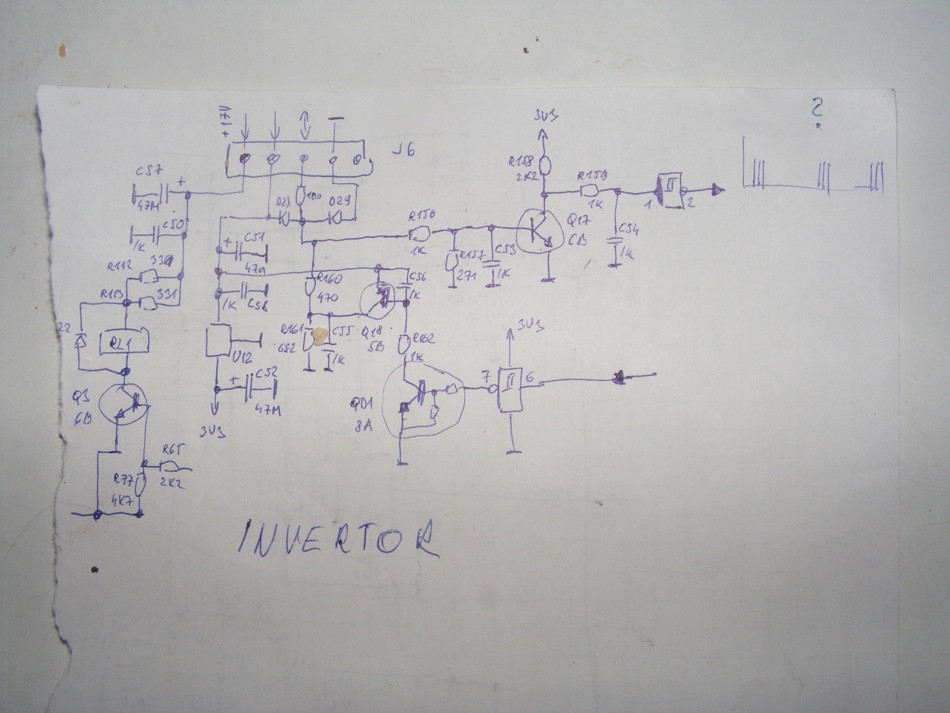 ?
+17V
J6
3V3
C57
+
47M
R158
2K2
R159
1K
1
2
C50
1K
D29
100
R156
1K
Q17
6B
C54
1K
+
C51
47M
R157
271
C53
1K
R112
331
R113
331
R160
470
C56
1K
1K
22
RL1
U12
R161
682
C55
1K
Q18
5B
R162
1K
3V3
+
C52
47M
7
6
Q3
6B
QD1
8A
3V3
R65
2K2
R77
4K7
INVERTOR